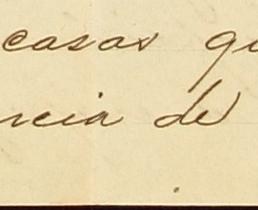 casas qu
ncia de